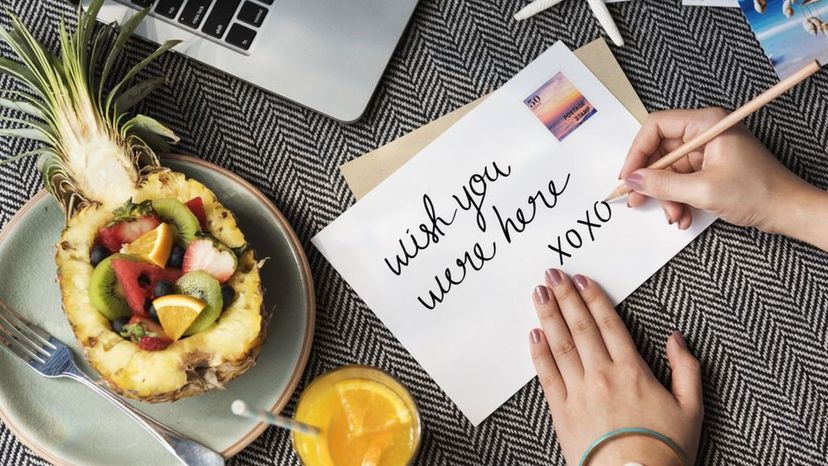 50
POSTAGE
STAMP
wish you
were here
xoxo